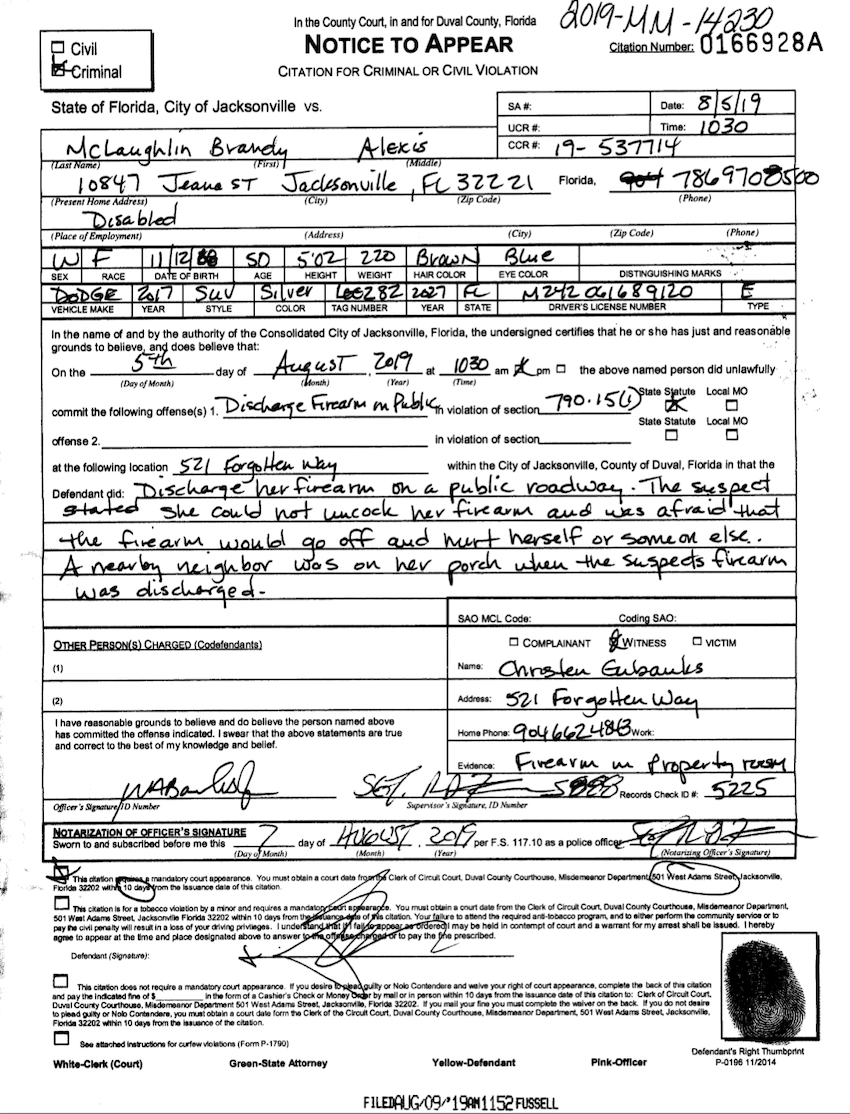 In the County Court, in and for Duval County, Florida
2019-MM-14230
NOTICE TO APPEAR
Citation Number: 0166928A
CITATION FOR CRIMINAL OR CIVIL VIOLATION
Civil
Criminal
State of Florida, City of Jacksonville vs.
SA #: Date: 8/5/19
UCR #: Time: 1030
CCR #: 19-537714
McLaughlin Brandy Alexis
(Last Name) (First) (Middle)
10847 Jeana ST Jacksonville, FL 32221 Florida, 904 7869708500
(Present Home Address) (City) (Zip Code) (Phone)
Disabled
(Place of Employment) (Address) (City) (Zip Code) (Phone)
W F 11/12/68 50 5'02 220 Brown Blue
SEX RACE DATE OF BIRTH AGE HEIGHT WEIGHT HAIR COLOR EYE COLOR DISTINGUISHING MARKS
DODGE 2017 SUV Silver 282 2027 FL M242 061689120 E
VEHICLE MAKE YEAR STYLE COLOR TAG NUMBER YEAR STATE DRIVER'S LICENSE NUMBER TYPE
In the name of and by the authority of the Consolidated City of Jacksonville, Florida, the undersigned certifies that he or she has just and reasonable
grounds to believe, and does believe that:
On the 5th day of August, 2019 at 1030 am pm the above named person did unlawfully
(Day of Month) (Month) (Year) (Time)
commit the following offense(s) 1. Discharge Firearm in Public in violation of section 790.15(1) State Statute Local MO
State Statute Local MO
offense 2. in violation of section
at the following location 521 Forgotten Way within the City of Jacksonville, County of Duval, Florida in that the
Defendant did: Discharge her firearm on a public roadway. The suspect
stated she could not uncock her firearm and was afraid that
the firearm would go off and hurt herself or someon else.
A nearby neighbor was on her porch when the suspects firearm
was discharged.
SAO MCL Code: Coding SAO:
OTHER PERSON(S) CHARGED (Codefendants)
COMPLAINANT WITNESS VICTIM
(1)
Name: Christen Eubanks
(2)
Address: 521 Forgotten Way
I have reasonable grounds to believe and do believe the person named above
has committed the offense indicated. I swear that the above statements are true
and correct to the best of my knowledge and belief.
Home Phone: 9046624843 Work:
Evidence: Firearm in Property room
Records Check ID #: 5225
Officer's Signature/ID Number Supervisor's Signature, ID Number
NOTARIZATION OF OFFICER'S SIGNATURE
Sworn to and subscribed before me this 7 day of AUGUST, 2019 per F.S. 117.10 as a police officer
(Day of Month) (Month) (Year) (Notarizing Officer's Signature)
This citation requires a mandatory court appearance. You must obtain a court date from the Clerk of Circuit Court, Duval County Courthouse, Misdemeanor Department, 501 West Adams Street, Jacksonville,
Florida 32202 within 10 days from the issuance date of this citation.
This citation is for a tobacco violation by a minor and requires a mandatory court appearance. You must obtain a court date from the Clerk of Circuit Court, Duval County Courthouse, Misdemeanor Department,
501 West Adams Street, Jacksonville Florida 32202 within 10 days from the issuance date of this citation. Your failure to attend the required anti-tobacco program, and to either perform the community service or to
pay the civil penalty will result in a loss of your driving privileges. I understand that if I fail to appear as ordered I may be held in contempt of court and a warrant for my arrest shall be issued. I hereby
agree to appear at the time and place designated above to answer to the offense charged or to pay the fine prescribed.
Defendant (Signature):
This citation does not require a mandatory court appearance. If you desire to plead guilty or Nolo Contendere and waive your right of court appearance, complete the back of this citation
and pay the indicated fine of $ in the form of a Cashier's Check or Money Order by mail or in person within 10 days from the issuance date of this citation to: Clerk of Circuit Court,
Duval County Courthouse, Misdemeanor Department 501 West Adams Street, Jacksonville, Florida 32202. If you mail your fine you must complete the waiver on the back. If you do not desire
to plead guilty or Nolo Contendere, you must obtain a court date form the Clerk of the Circuit Court, Duval County Courthouse, Misdemeanor Department, 501 West Adams Street, Jacksonville,
Florida 32202 within 10 days from the issuance of the citation.
See attached instructions for curfew violations (Form P-1790)
Defendant's Right Thumbprint
P-0196 11/2014
White-Clerk (Court) Green-State Attorney Yellow-Defendant Pink-Officer
FILED AUG/09/'19 AM 1152 FUSSELL